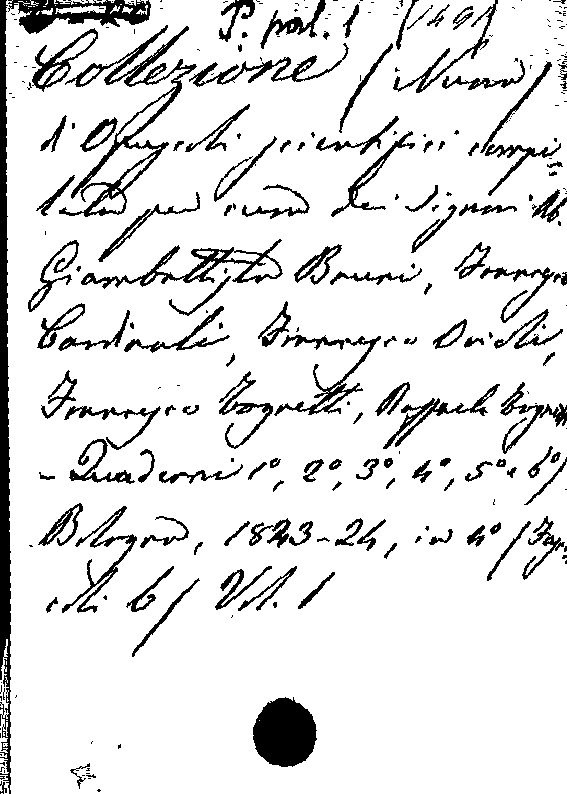 P. pal. 1 (1491
Collezione (Nuova)
di Opuscoli scientifici compi=
lata per cura dei Signori Ab.
Giambattista Bruni, Francesco
Cardinali, Francesco Orioli,
Francesco Tognetti, Raffaele Tognetti
- Quaderni 1º, 2º, 3º, 4º, 5º e 6º/
Bologna, 1823-24, in 4º (Fasci-
coli 6) Vol. 1